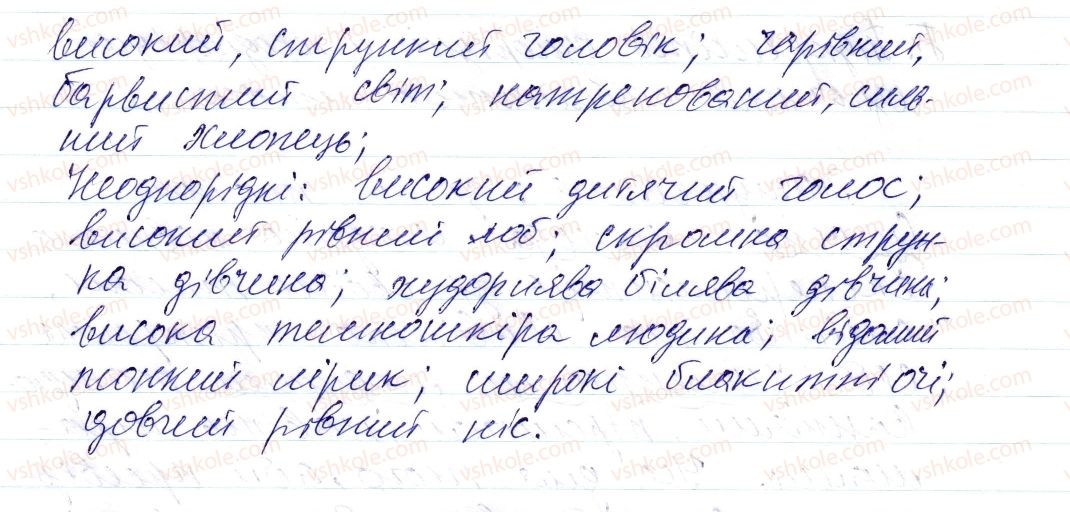 високий, стрункий чоловік; чарівний,
барвистий світ; натренований, силь-
ний хлопець;
Неоднорідні: високий дитячий голос;
високий рівний лоб; скромна струн-
ка дівчина; худорлява білява дівчина;
висока темношкіра людина; відомий
тонкий лірик; широкі блакитні очі;
довгий рівний ніс.